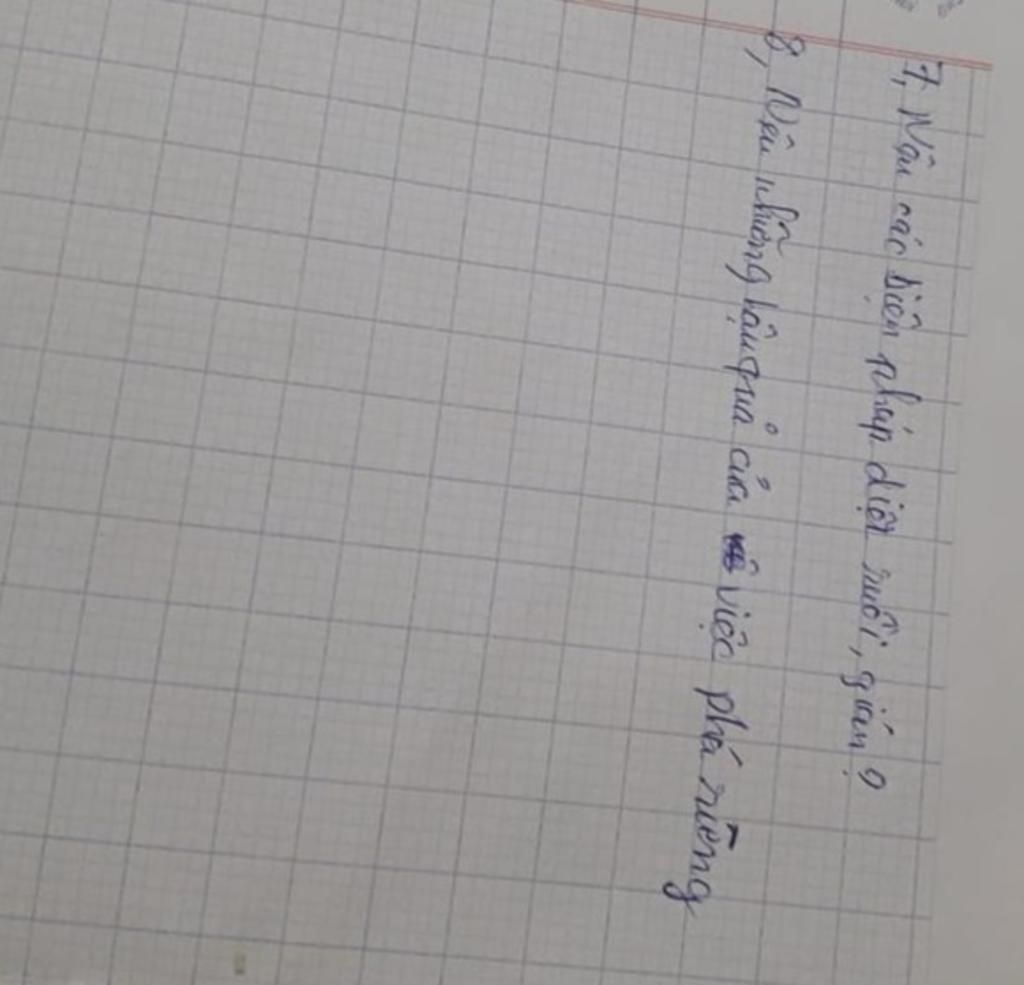 7, Nêu các biện pháp diệt ruồi, gián?
8, Nêu những hậu quả của việc phá rừng